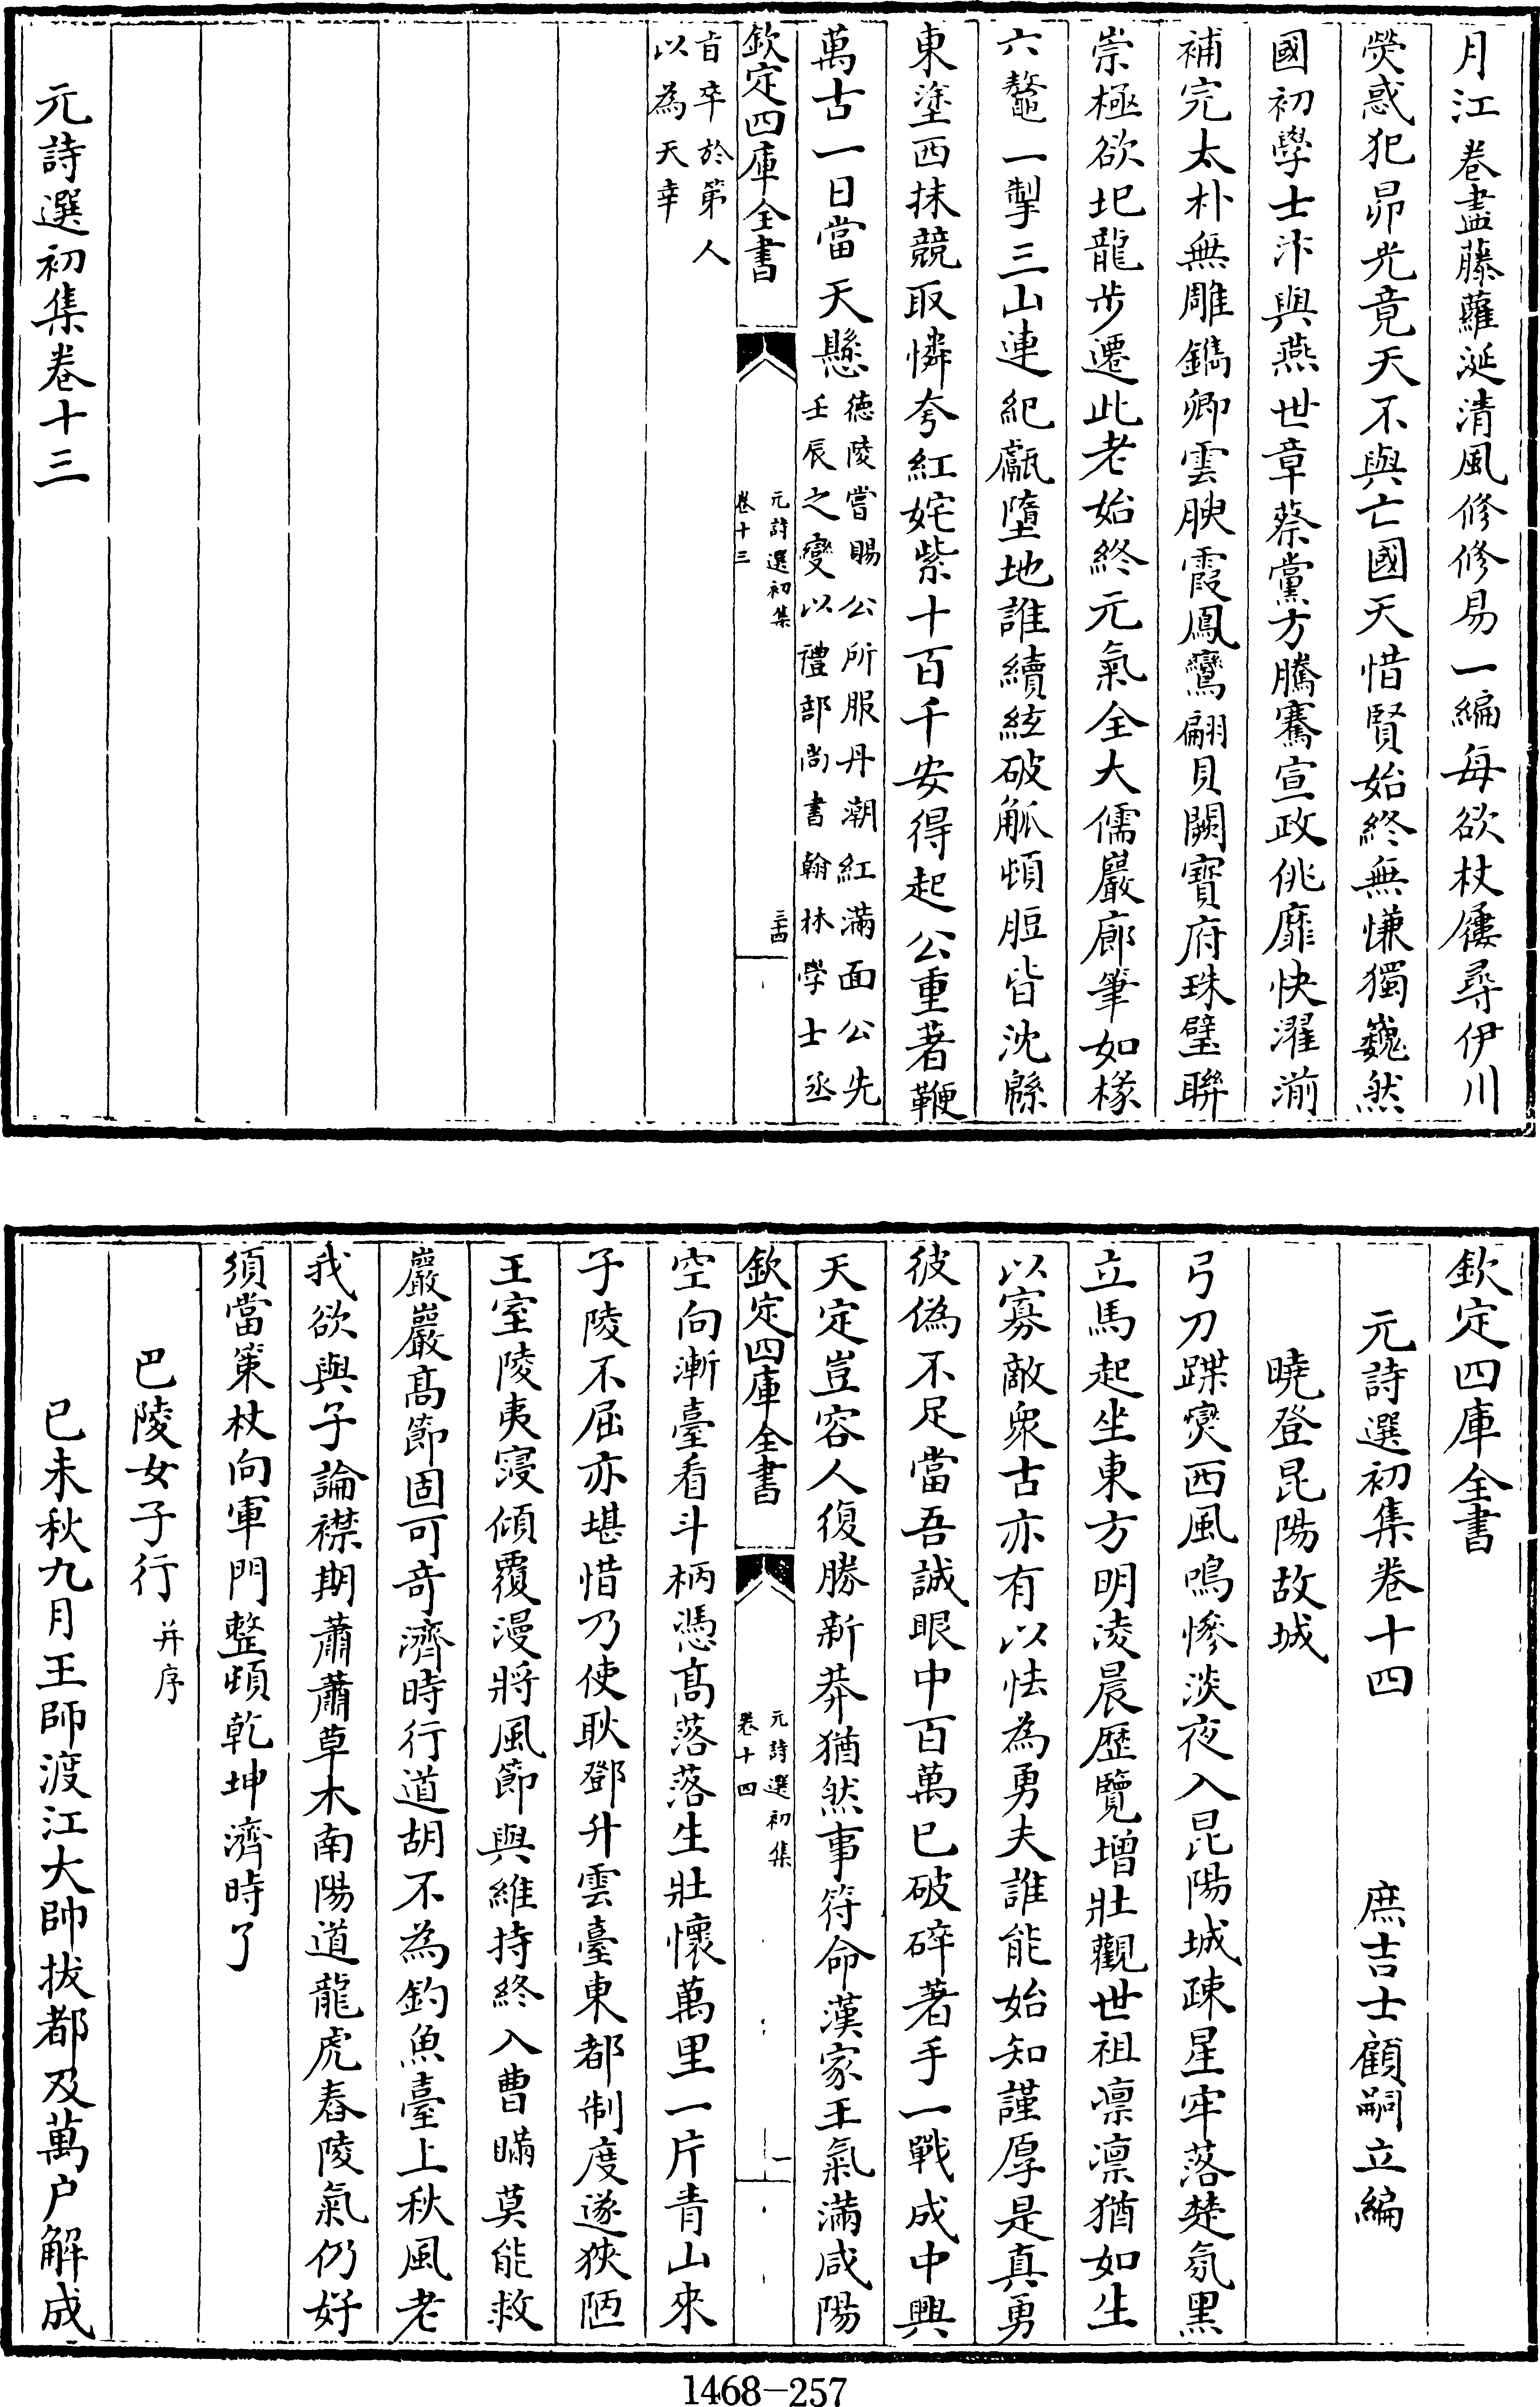 月江卷盡藤蘿涎清風修修易一編每欲杖屨尋伊川
熒惑犯昴光竟天不與亡國天惜賢始終無慊獨巍然
國初學士汴與燕世章蔡黨方騰騫宣政佻靡快濯湔
補完太朴無雕鐫卿雲腴霞鳳鸞翩貝闕寶府珠璧聯
崇極欲圮龍步遷此老始終元氣全大儒巖廊筆如椽
六鼇一掣三山連紀甗墮地誰續絃破觚頓脰皆沈緜
東塗西抹競取憐夸紅姹紫十百千安得起公重著鞭
萬古一日當天懸德陵嘗賜公所服丹潮紅滿面公先
壬辰之變以禮部尚書翰林學士丞
欽定四庫全書
元詩選初集
卷十三
三十四
旨卒於第人
以為天幸
元詩選初集卷十三
欽定四庫全書
元詩選初集卷十四 庶吉士顧嗣立編
曉登昆陽故城
弓刀蹀爕西風鳴慘淡夜入昆陽城疎星牢落楚氛黑
立馬起坐東方明淩晨歷覽增壯觀世祖凛凛猶如生
以寡敵衆古亦有以怯為勇夫誰能始知謹厚是真勇
彼偽不足當吾誠眼中百萬已破碎著手一戰成中興
天定豈容人復勝新莽猶然事符命漢家王氣滿咸陽
欽定四庫全書
元詩選初集
卷十四
一
空向漸臺看斗柄憑髙落落生壯懷萬里一片青山來
子陵不屈亦堪惜乃使耿鄧升雲臺東都制度遂狹陋
王室陵夷寖傾覆漫將風節與維持終入曹瞞莫能救
嚴巖髙節固可奇濟時行道胡不為釣魚臺上秋風老
我欲與子論襟期蕭蕭草木南陽道龍虎舂陵氣仍好
須當策杖向軍門整頓乾坤濟時了
巴陵女子行并序
已未秋九月王師渡江大帥拔都及萬户解成
1468-257